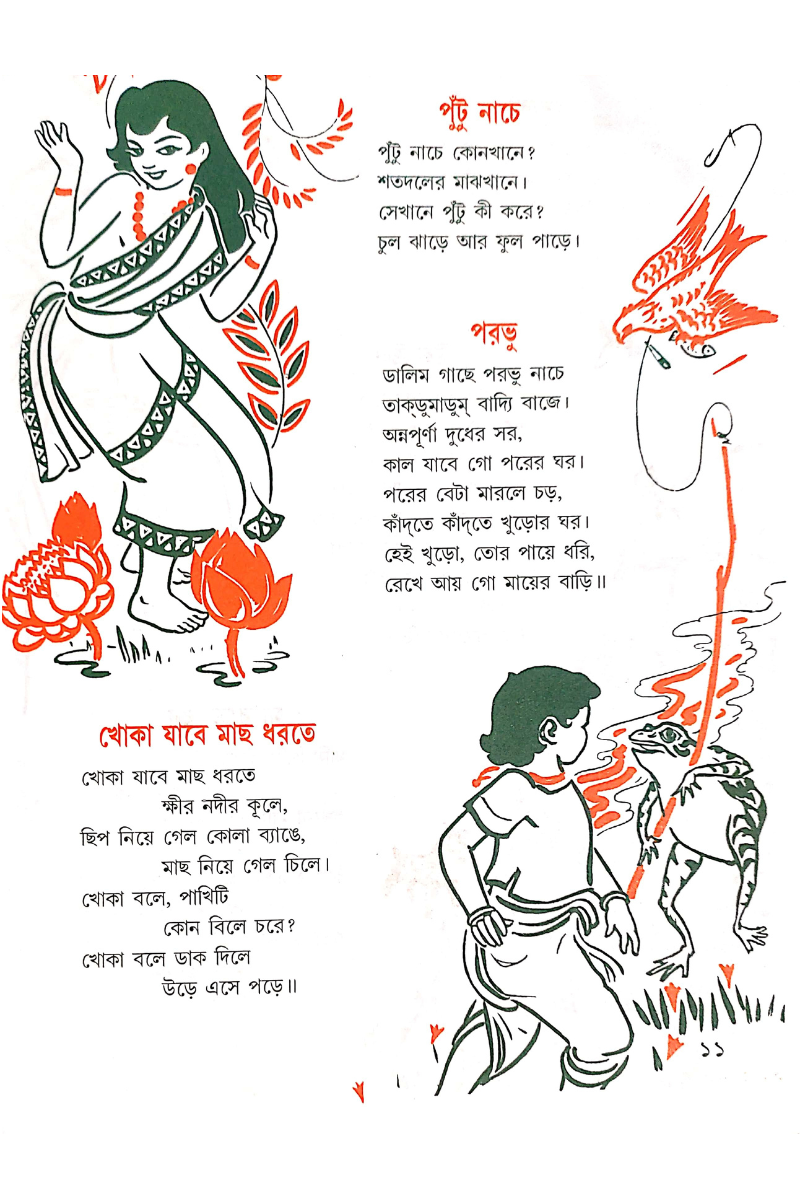 পুঁটু নাচে
পুঁটু নাচে কোনখানে?
শতদলের মাঝখানে।
সেখানে পুঁটু কী করে?
চুল ঝাড়ে আর ফুল পাড়ে।
পরভু
ডালিম গাছে পরভু নাচে
তাক্‌ডুমাডুম্ বাদ্যি বাজে।
অন্নপূর্ণা দুধের সর,
কাল যাবে গো পরের ঘর।
পরের বেটা মারলে চড়,
কাঁদ্‌তে কাঁদ্‌তে খুড়োর ঘর।
হেই খুড়ো, তোর পায়ে ধরি,
রেখে আয় গো মায়ের বাড়ি॥
খোকা যাবে মাছ ধরতে
খোকা যাবে মাছ ধরতে
ক্ষীর নদীর কূলে,
ছিপ নিয়ে গেল কোলা ব্যাঙে,
মাছ নিয়ে গেল চিলে।
খোকা বলে, পাখিটি
কোন বিলে চরে?
খোকা বলে ডাক দিলে
উড়ে এসে পড়ে॥
১১